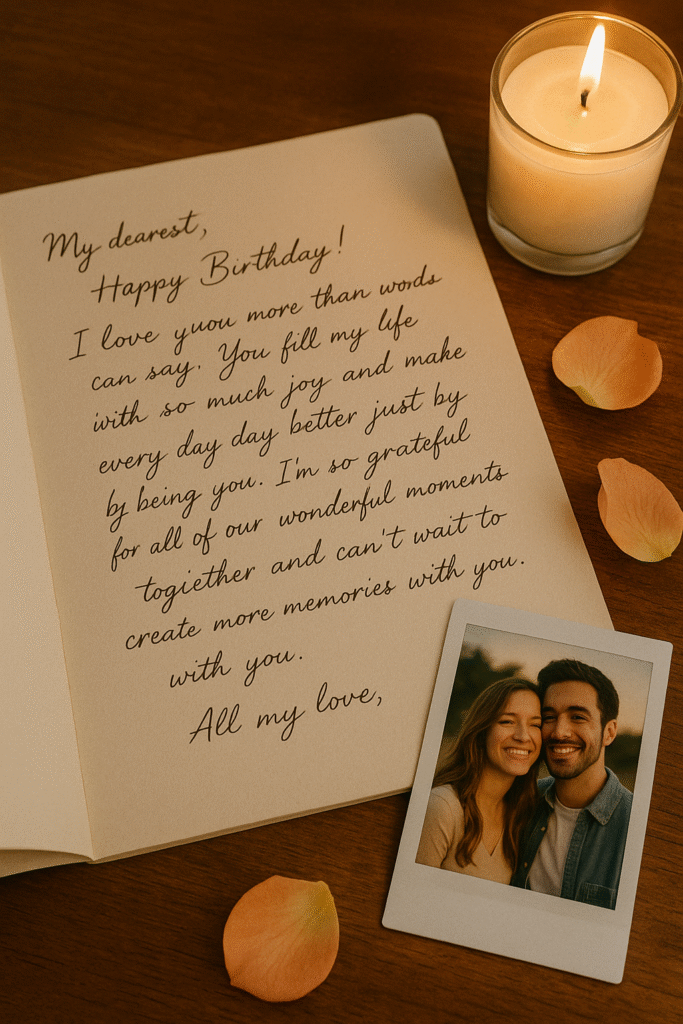 My dearest,
Happy Birthday!
I love yuou more than words
can say. You fill my life
with so much joy and make
every day day better just by
by being you. I'm so grateful
for all of our wonderful moments
togiether and can't wait to
create more memories with you.
with you.
All my love,